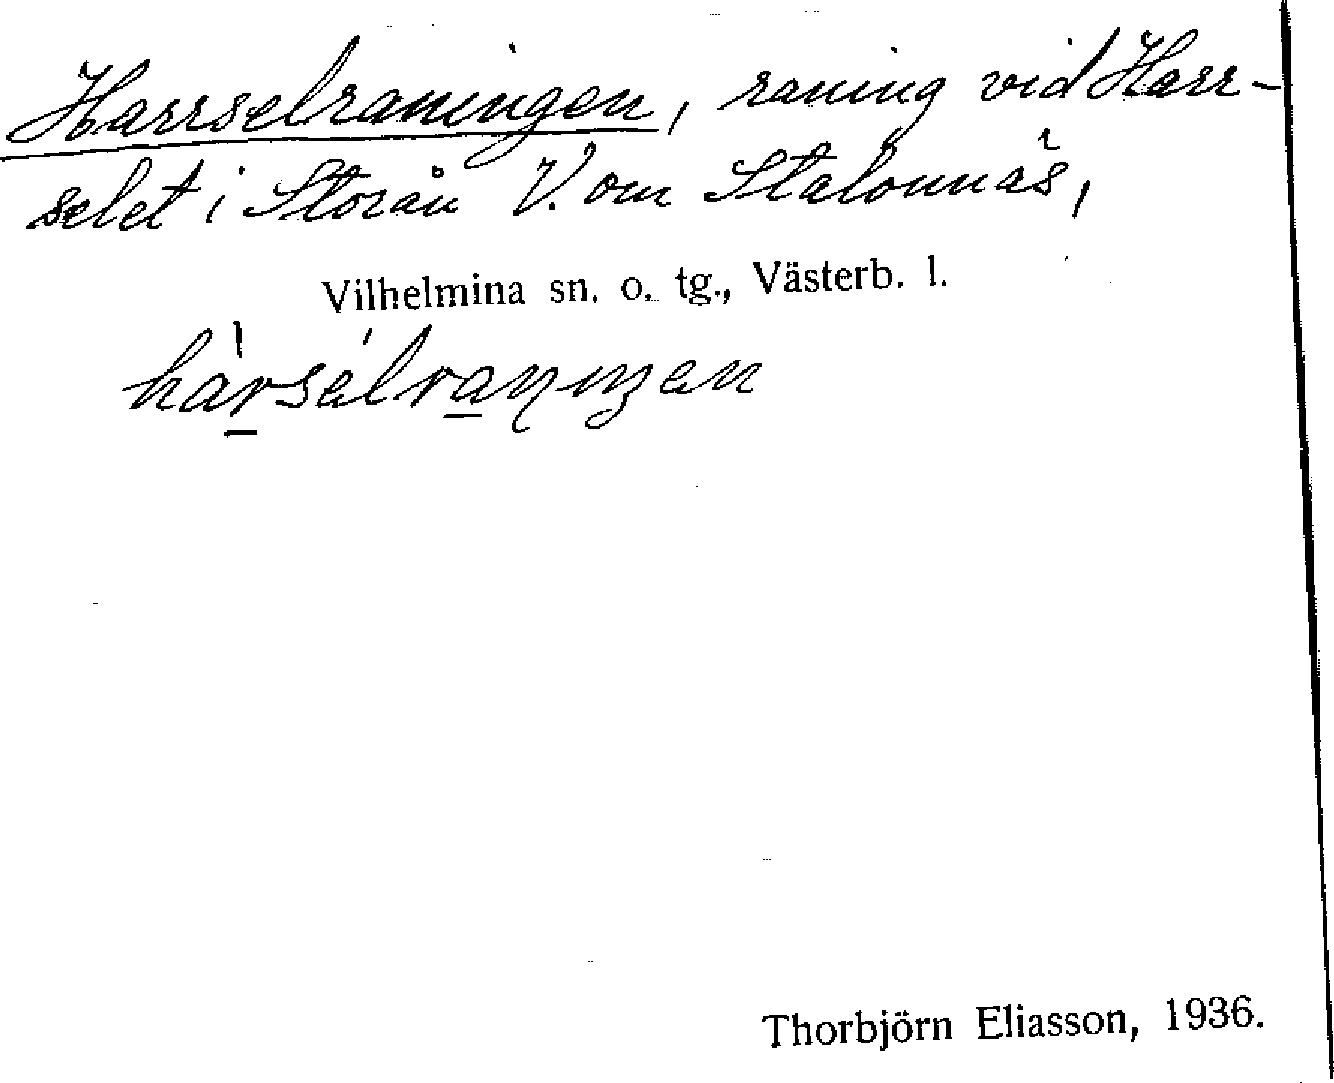 Harrselraningen, raning vid Harr-
selet i Storån V. om Stalonnäs,
Vilhelmina sn. o. tg., Västerb. l.
Thorbjörn Eliasson, 1936.